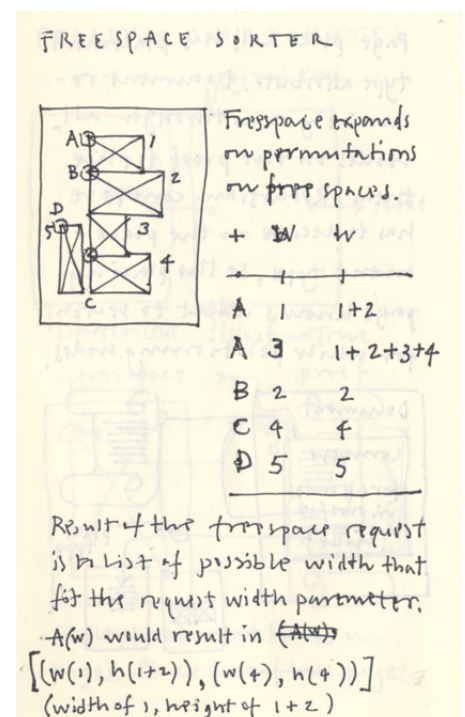 FREESPACE SORTER
A 1
B 2
D
5 3
4
C
Freespace expands
on permutations
on free spaces.
+ W h
A 1 1+2
A 3 1+2+3+4
B 2 2
C 4 4
D 5 5
Result of the freespace request
is a list of possible width that
fit the request width parameter.
A(w) would result in
[(w(1), h(1+2)), (w(4), h(4))]
(width of 1, height of 1+2)